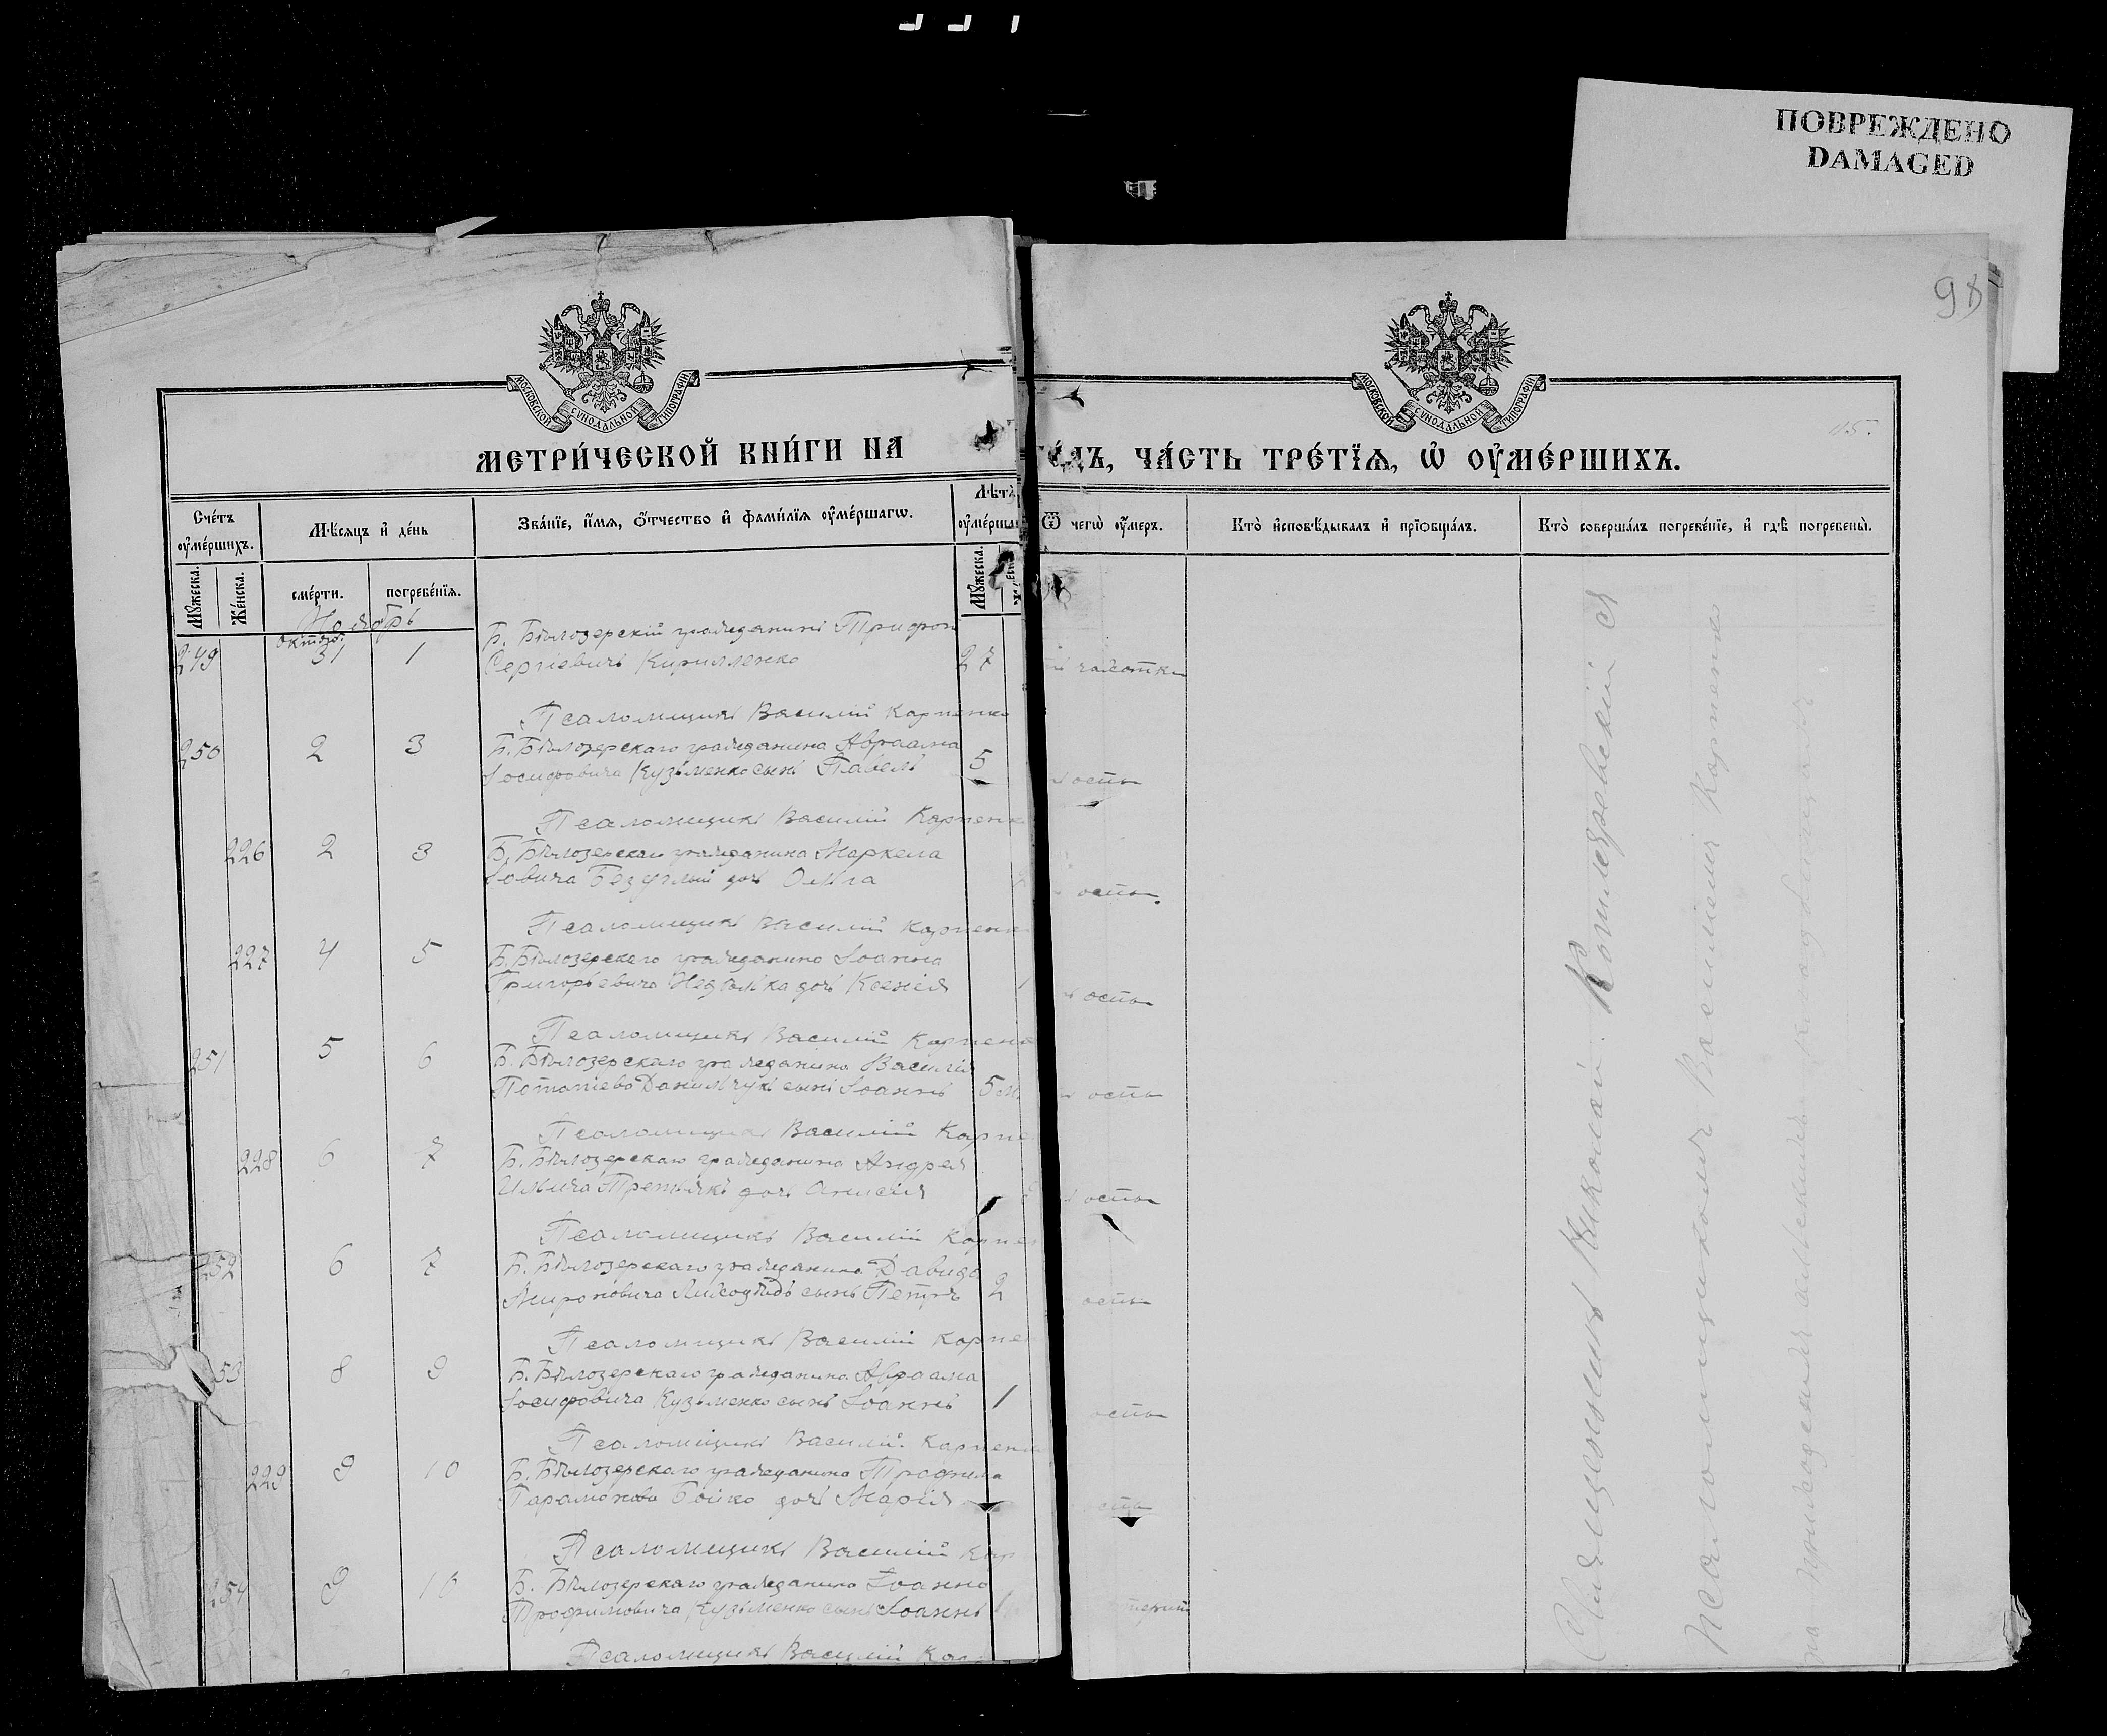 ПОВРЕЖДЕНО
DAMAGED
МОСКОВСКОЙ СѴНОДАЛЬНОЙ ТИПОГРАФІИ
МОСКОВСКОЙ СѴНОДАЛЬНОЙ ТИПОГРАФІИ
115.
МЕТРИ́ЧЕСКОЙ КНИ́ГИ НА
ЧА́СТЬ ТРЕ́ТЇЯ, Ѿ ОУМЕ́РШИХЪ.
Сче́тъ оуме́ршихъ.
Мѣ́сяцъ и де́нь
Зва́нїе, и́мя, о́тчество и фами́лїя оуме́ршагѡ.
Лѣтъ
Ѿ чегѡ̀ оу́меръ.
Кто̀ исповѣ́дывалъ и прїѡбща́лъ.
Кто̀ соверша́лъ погребе́нїе, и гдѣ̀ погребены̀.
Му́жеска.
Же́нска.
сме́рти.
погребе́нїя.
Му́жеска.
Ноябрь
249 Октяб. 31 1 Б. Бѣлозерскій гражданинъ Трифон
Сергіевичъ Кирилленко 27 чахотки
Псаломщикъ Василій Карпенко
250 2 3 Б. Бѣлозерскаго гражданина Авраама
Іосифовича Кузьменко сынъ Павелъ 5 оспы
Псаломщикъ Василій Карпенк
226 2 3 Б. Бѣлозерскаго гражданина Маркела
дочь Ольга оспы.
Псаломщикъ Василій Карпенк
227 4 5 Б. Бѣлозерскаго гражданина Іоанна
Григорьевича дочь Ксенія оспы
Псаломщикъ Василій Карпенк
251 5 6 Б. Бѣлозерскаго гражданина Василія
Потапіева Данильчукъ сынъ Іоаннъ 5 м. оспы
Псаломщикъ Василій Карпе
228 6 7 Б. Бѣлозерскаго гражданина Андрея
Ильича Третьякъ дочь Анисія оспы
Псаломщикъ Василій Карпе
252 6 7 Б. Бѣлозерскаго гражданина Давида
Мироновича сынъ Петръ 2 оспы
Псаломщикъ Василій Карпе
53 8 9 Б. Бѣлозерскаго гражданина Авраама
Іосифовича Кузьменко сынъ Іоаннъ 1 оспы
Псаломщикъ Василій Карпен
229 9 10 Б. Бѣлозерскаго гражданина Трофима
Парамонова Бойко дочь Марія оспы
Псаломщикъ Василій Кар
254 9 10 Б. Бѣлозерскаго гражданина Іоанна
Трофимовича Кузьменко сынъ Іоаннъ 1
Псаломщикъ Василій Кар
Священникъ Николай Котляревскій съ
псаломщикомъ Василіемъ Карпенко
на приходскомъ кладбищѣ